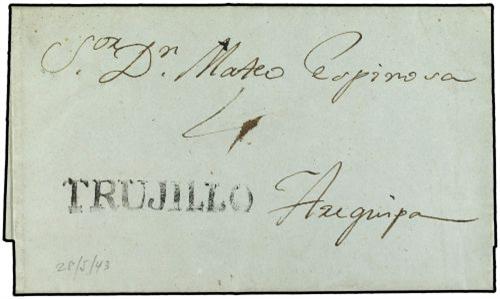 Sor. Dr. Mateo Espinosa
4
TRUJILLO Arequipa
28/5/43